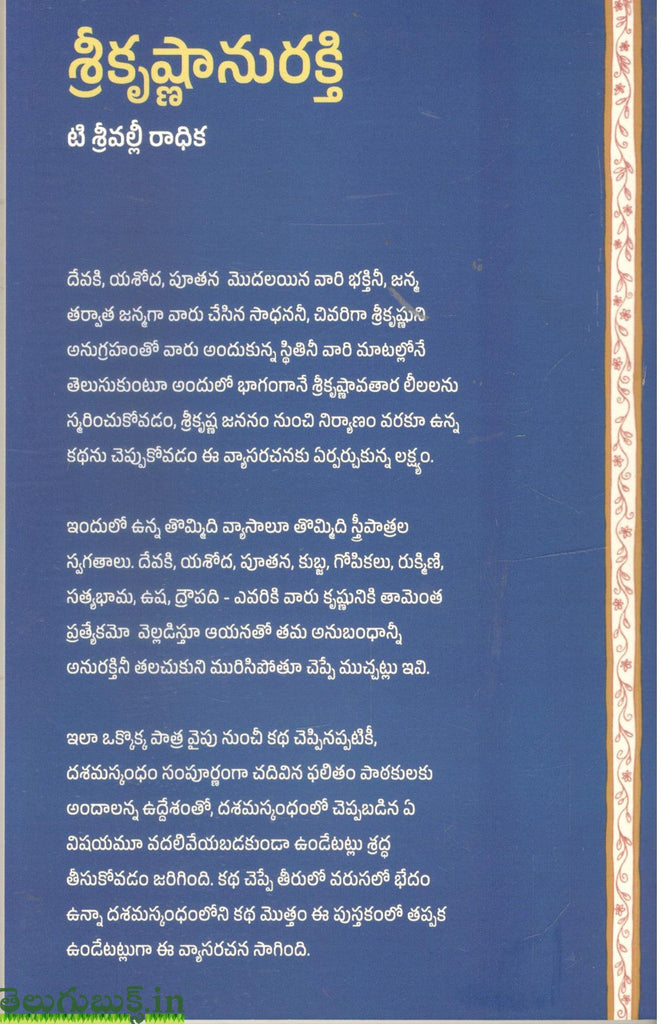 శ్రీకృష్ణానురక్తి
టి శ్రీవల్లీ రాధిక
దేవకి, యశోద, పూతన మొదలయిన వారి భక్తినీ, జన్మ
తర్వాత జన్మగా వారు చేసిన సాధననీ, చివరిగా శ్రీకృష్ణుని
అనుగ్రహంతో వారు అందుకున్న స్థితినీ వారి మాటల్లోనే
తెలుసుకుంటూ అందులో భాగంగానే శ్రీకృష్ణావతార లీలలను
స్మరించుకోవడం, శ్రీకృష్ణ జననం నుంచి నిర్యాణం వరకూ ఉన్న
కథను చెప్పుకోవడం ఈ వ్యాసరచనకు ఏర్పర్చుకున్న లక్ష్యం.
ఇందులో ఉన్న తొమ్మిది వ్యాసాలూ తొమ్మిది స్త్రీపాత్రల
స్వగతాలు. దేవకి, యశోద, పూతన, కుబ్జ, గోపికలు, రుక్మిణి,
సత్యభామ, ఉష, ద్రౌపది - ఎవరికి వారు కృష్ణునికి తామెంత
ప్రత్యేకమో వెల్లడిస్తూ ఆయనతో తమ అనుబంధాన్నీ
అనురక్తినీ తలచుకుని మురిసిపోతూ చెప్పే ముచ్చట్లు ఇవి.
ఇలా ఒక్కొక్క పాత్ర వైపు నుంచీ కథ చెప్పినప్పటికీ,
దశమస్కంధం సంపూర్ణంగా చదివిన ఫలితం పాఠకులకు
అందాలన్న ఉద్దేశంతో, దశమస్కంధంలో చెప్పబడిన ఏ
విషయమూ వదలివేయబడకుండా ఉండేటట్లు శ్రద్ధ
తీసుకోవడం జరిగింది. కథ చెప్పే తీరులో వరుసలో భేదం
ఉన్నా దశమస్కంధంలోని కథ మొత్తం ఈ పుస్తకంలో తప్పక
ఉండేటట్లుగా ఈ వ్యాసరచన సాగింది.
తెలుగుబుక్.in